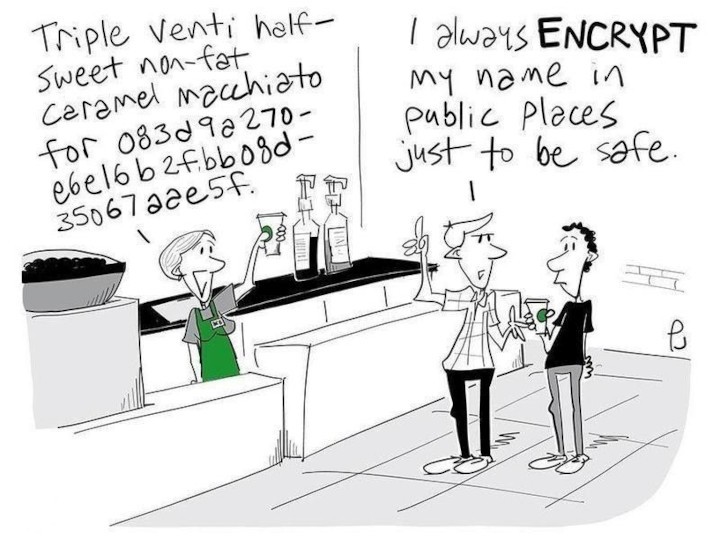 Triple Venti half-
sweet non-fat
Caramel macchiato
for 083d9a270-
e6e16b2fibb08d-
35067aae5f.
I always ENCRYPT
my name in
public places
just to be safe.